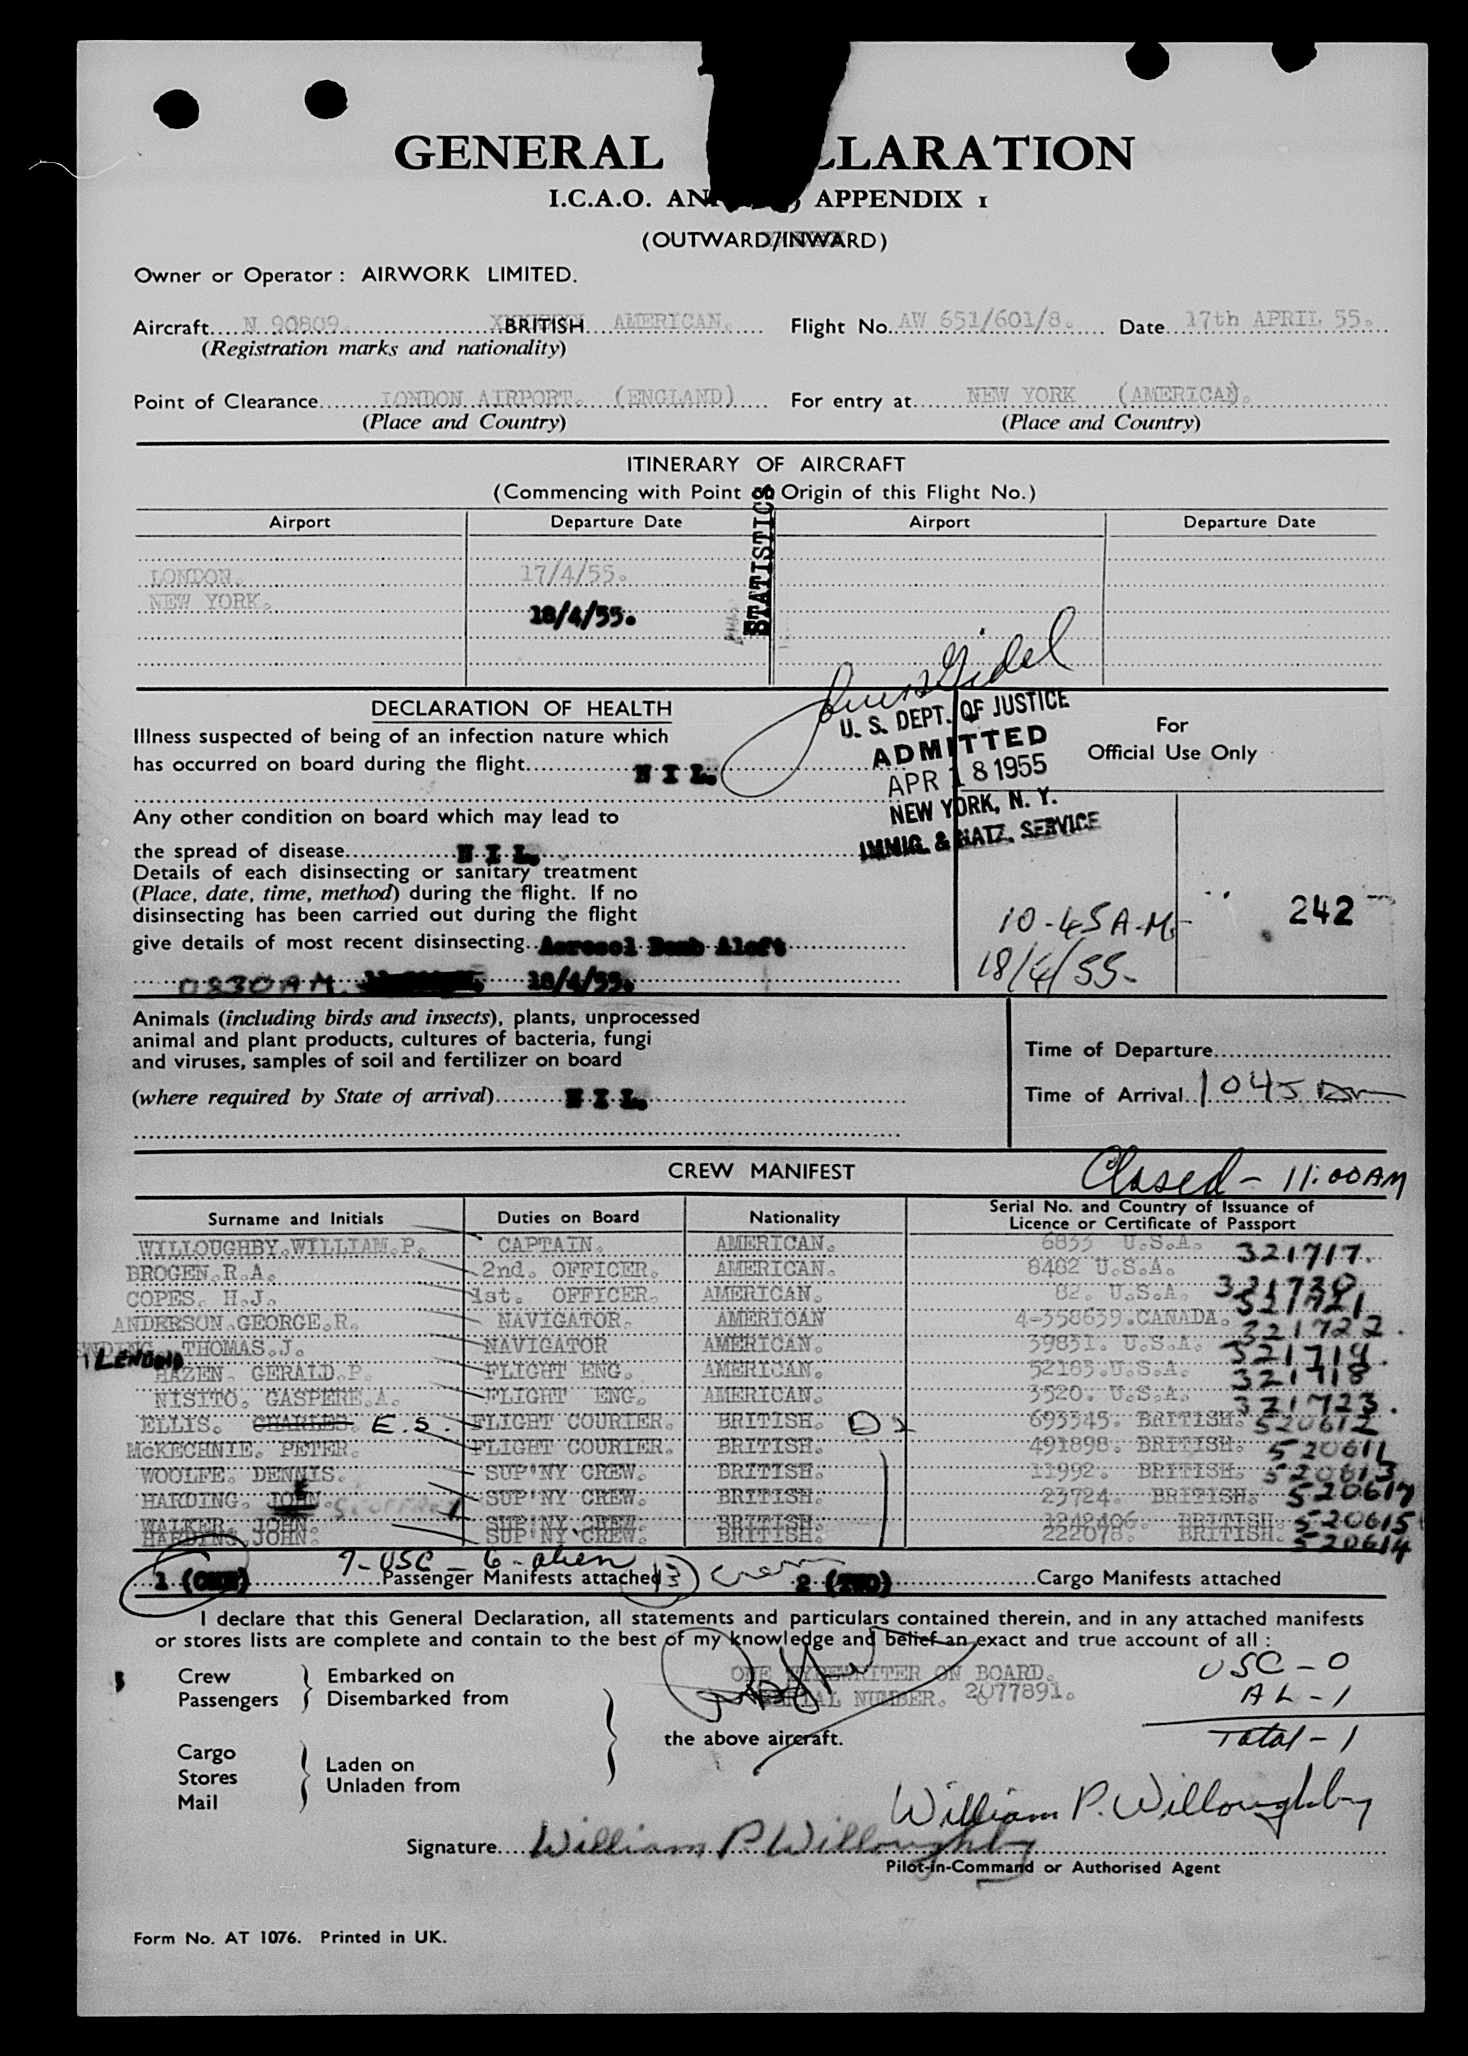 GENERAL LARATION
I.C.A.O. APPENDIX 1
(OUTWARD/INWARD)
Owner or Operator : AIRWORK LIMITED.
Aircraft.... N 90809. BRITISH AMERICAN. Flight No. AW 651/601/8. Date 17th APRIL 55.
(Registration marks and nationality)
Point of Clearance LONDON AIRPORT. (ENGLAND) For entry at NEW YORK (AMERICA).
(Place and Country) (Place and Country)
ITINERARY OF AIRCRAFT
(Commencing with Point Origin of this Flight No.)
Airport Departure Date Airport Departure Date
STATISTICS
LONDON. 17/4/55.
NEW YORK. 18/4/55.
DECLARATION OF HEALTH
Illness suspected of being of an infection nature which
has occurred on board during the flight N I L.
U. S. DEPT. OF JUSTICE
ADMITTED
APR 18 1955
NEW YORK, N. Y.
IMMIG. & NATZ. SERVICE
For
Official Use Only
Any other condition on board which may lead to
the spread of disease N I L.
Details of each disinsecting or sanitary treatment
(Place, date, time, method) during the flight. If no
disinsecting has been carried out during the flight
give details of most recent disinsecting.. Aerosol Bomb Aloft
0830 AM. 18/4/55.
10-45 A.M.
18/4/55-
242
Animals (including birds and insects), plants, unprocessed
animal and plant products, cultures of bacteria, fungi
and viruses, samples of soil and fertilizer on board
(where required by State of arrival) N I L.
Time of Departure
Time of Arrival 1045 Am
CREW MANIFEST Closed - 11:00AM
Surname and Initials Duties on Board Nationality Serial No. and Country of Issuance of
Licence or Certificate of Passport
WILLOUGHBY.WILLIAM.P. CAPTAIN. AMERICAN. 6833 U.S.A. 321717.
BROGEN.R.A. 2nd. OFFICER. AMERICAN. 8482 U.S.A.
COPES. H.J. 1st. OFFICER. AMERICAN. 82. U.S.A. 321721
ANDERSON.GEORGE.R. NAVIGATOR. AMERICAN 4-358639.CANADA. 321722.
LENDING THOMAS.J. NAVIGATOR AMERICAN. 39831. U.S.A. 321719.
HAZEN. GERALD.P. FLIGHT ENG. AMERICAN. 52185.U.S.A. 321718
NISITO. GASPERE.A. FLIGHT ENG. AMERICAN. 3520. U.S.A. 321723.
ELLIS. CHARLES. E.S. FLIGHT COURIER. BRITISH. 693345. BRITISH. 520612
McKECHNIE. PETER. FLIGHT COURIER. BRITISH. 491898. BRITISH. 520611
WOOLFE. DENNIS. SUP'NY CREW. BRITISH. 11992. BRITISH. 520613
HARDING. JOHN. GEOFFREY SUP'NY CREW. BRITISH. 23724. BRITISH. 520617
WALKER. JOHN. SUP'NY CREW. BRITISH. 1242406. BRITISH. 520615
HARDING.JOHN. SUP'NY CREW. BRITISH. 222078. BRITISH. 520614
7-USC - 6-alien
1 (ONE) Passenger Manifests attached 13 Crew 2 (TWO) Cargo Manifests attached
I declare that this General Declaration, all statements and particulars contained therein, and in any attached manifests
or stores lists are complete and contain to the best of my knowledge and belief an exact and true account of all :
Crew Embarked on ONE TYPEWRITER ON BOARD.
Passengers Disembarked from SERIAL NUMBER. 2077891.
USC - 0
AL - 1
Total - 1
the above aircraft.
Cargo
Stores Laden on
Mail Unladen from
William P. Willoughby
Signature.... William P. Willoughby
Pilot-in-Command or Authorised Agent
Form No. AT 1076. Printed in UK.